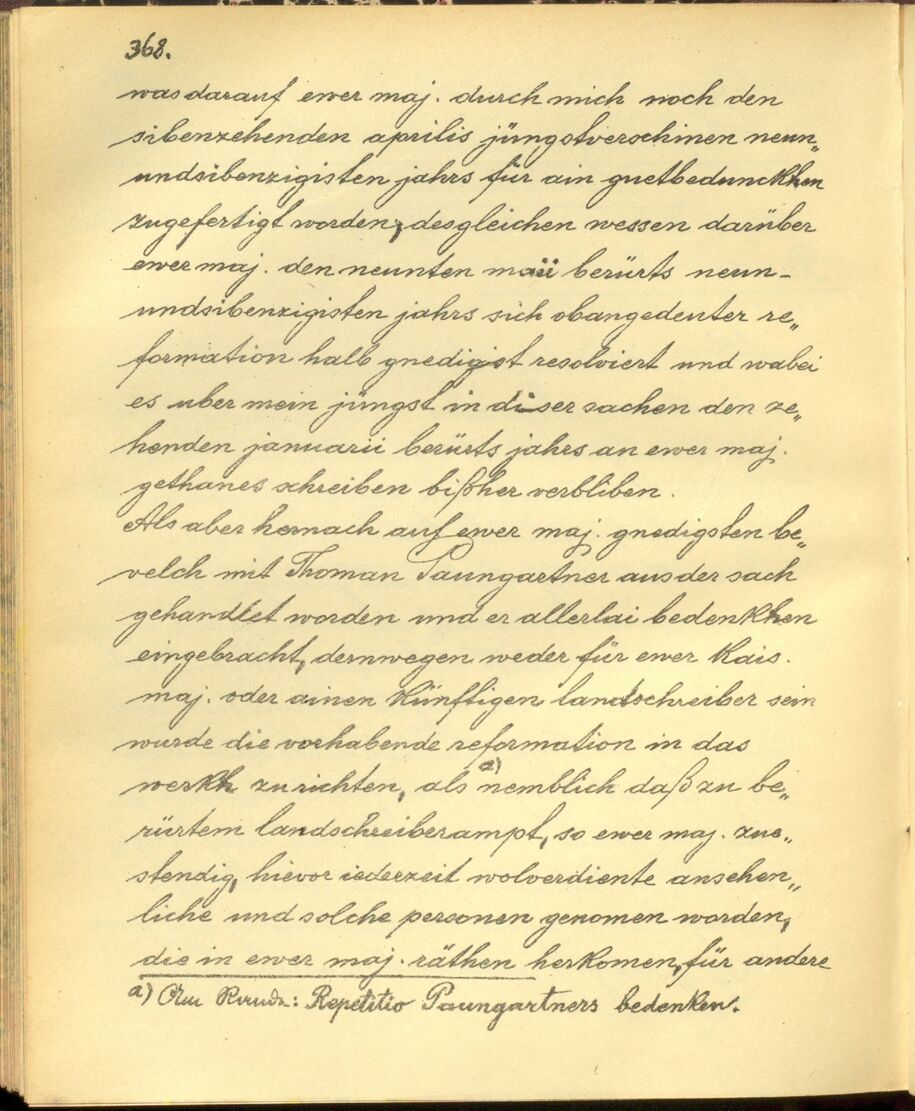 368.
was darauf ewer maj. durch mich noch den
sibenzehenden aprilis jüngstverschinen neun„
undsibenzigisten jahrs für ain guetbedunckhen
zugefertigt worden, desgleichen wessen darüber
ewer maj. den neunten maii berürts neun-
undsibenzigisten jahrs sich obangedeuter re„
formation halb gnedigist resolviert und wabei
es uber mein jüngst in diser sachen den ze„
henden januarii berürts jahrs an ewer maj.
gethanes schreiben bißher verbliben.
Als aber hernach auf ewer maj. gnedigsten be„
velch mit Thoman Paungartner aus der sach
gehandlet worden und er allerlai bedenkhen
eingebracht, dernwegen weder für ewer kais.
maj. oder ainen künfftigen landschreiber sein
wurde die vorhabende reformation in das
werkh zu richten, als a) nemblich daß zu be„
rürtem landschreiberampt, so ewer maj. zue„
stendig, hievor iederzeit wolverdiente ansehen„
liche und solche personen genomen worden,
die in ewer maj. räthen herkomen, für andere
a) Am Rande: Repetitio Paungartners bedenken.